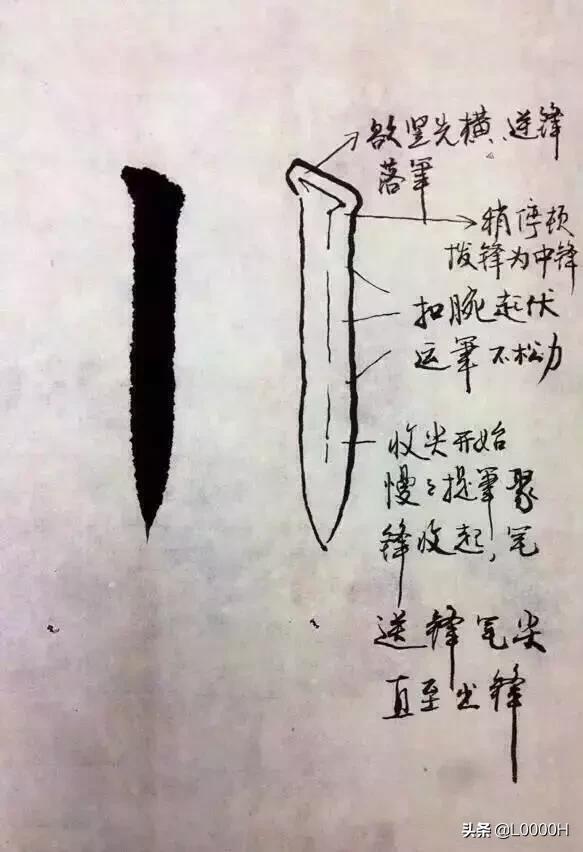 欲竖先横、逆锋
落筆
稍停顿
拨锋为中锋
扣腕起伏
运筆不松力
收尖开始
慢々提筆聚
锋收起,笔
送锋笔尖
直至出锋
头条 @L0000H